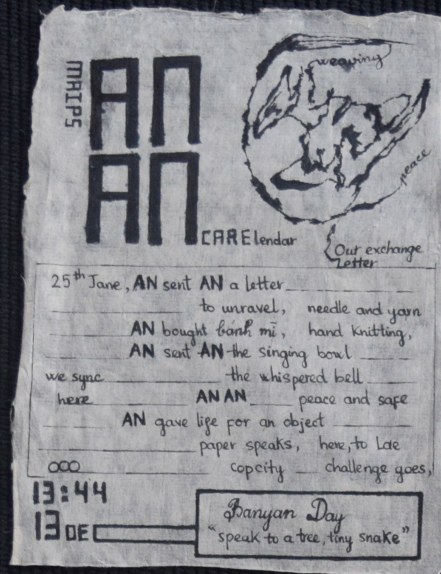 MAIPS
AN
AN
CARElendar
weaving
peace
Our exchange
Letter
25th Jane, AN sent AN a letter
to unravel, needle and yarn
AN bought bánh mì, hand knitting,
AN sent AN the singing bowl
we sync the whispered bell
here AN AN peace and safe
AN gave life for an object
paper speaks, here, to Lae
copcity challenge goes,
13:44
13 DE
Banyan Day
"speak to a tree, tiny snake"